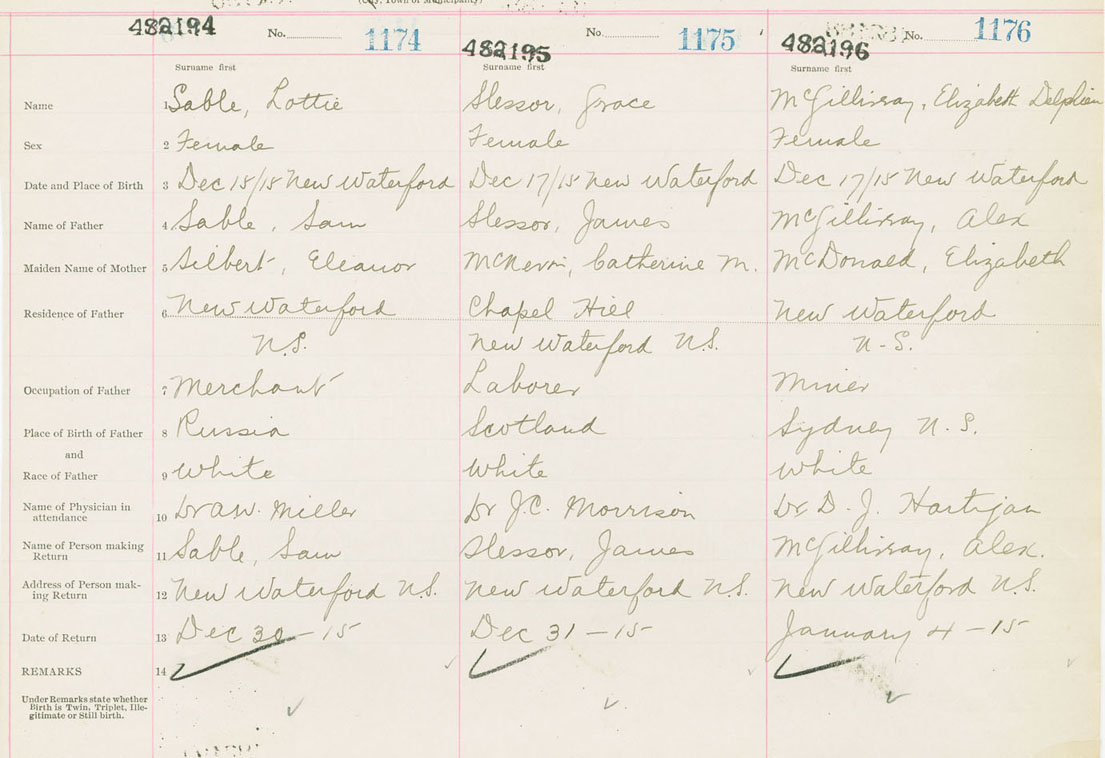 (City, Town or Municipality)
482194 No. 1174 482195 No. 1175 482196 No. 1176
Surname first Surname first Surname first
Name 1 Sable, Lottie Slessor, Grace McGillivray, Elizabeth Delphien
Sex 2 Female Female Female
Date and Place of Birth 3 Dec 15/15 New Waterford Dec 17/15 New Waterford Dec 17/15 New Waterford
Name of Father 4 Sable, Sam Slessor, James McGillivray, Alex
Maiden Name of Mother 5 Silbert, Eleanor Catherine M. McDonald, Elizabeth
Residence of Father 6 New Waterford Chapel Hill New Waterford
N.S. New Waterford N.S. N-S.
Occupation of Father 7 Merchant Laborer Miner
Place of Birth of Father 8 Russia Scotland Sydney N.S.
and
Race of Father 9 White White White
Name of Physician in
attendance 10 Dr AW. Miller Dr J.C. Morrison Dr. D. J. Hartigan
Name of Person making
Return 11 Sable, Sam Slessor, James McGillivray, Alex.
Address of Person mak-
ing Return 12 New Waterford N.S. New Waterford N.S. New Waterford N.S.
Date of Return 13 Dec 30-15 Dec 31-15 January 4-15
REMARKS 14
Under Remarks state whether
Birth is Twin, Triplet, Ille-
gitimate or Still birth.